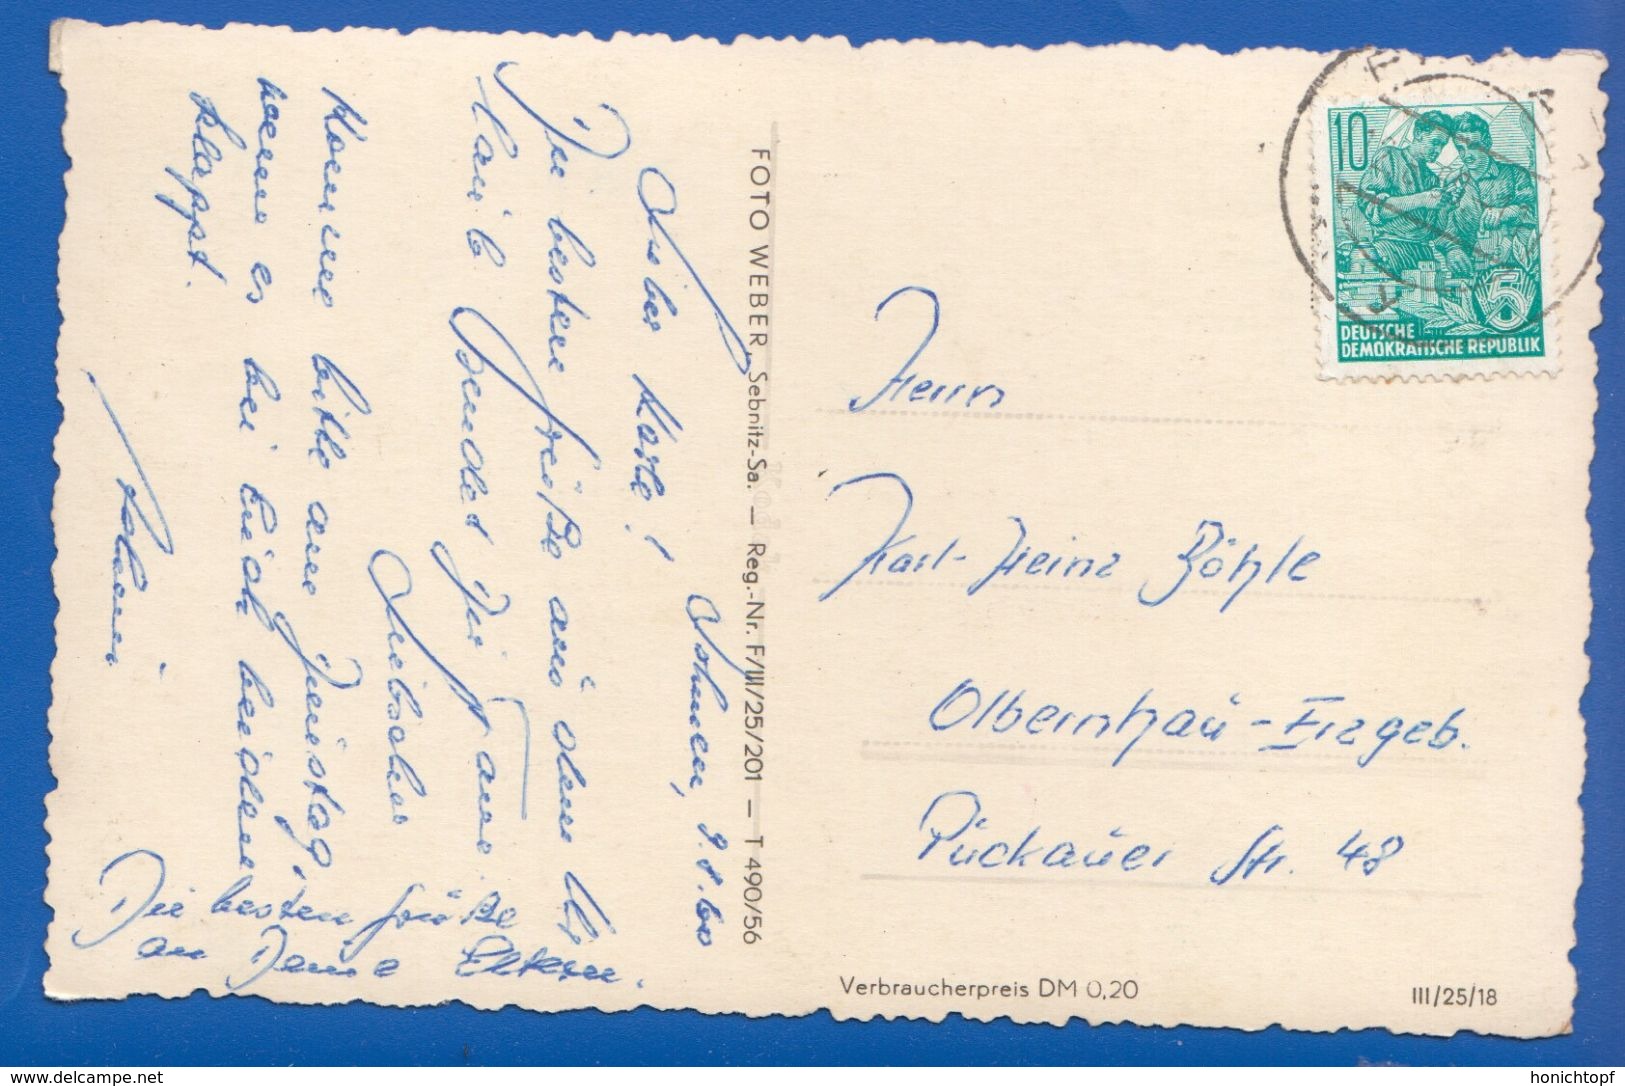 Lohmen, 9.8.60
Lieber Karle!
Die besten Grüße aus dem Ur-
laub sendet Dir Fam.
Liebscher
Komme bitte am Dienstag,
wenn es bei Euch beiden
klappt.
Die besten Grüße
an Deine Eltern.
FOTO WEBER, Sebnitz-Sa. — Reg.-Nr. F/III/25/201 — T 490/56
10
5
DEUTSCHE
DEMOKRATISCHE REPUBLIK
Herrn
Karl-Heinz Böhle
Olbernhau-Erzgeb.
Pockauer Str. 48
Verbraucherpreis DM 0,20
III/25/18
www.delcampe.net
honichtopf